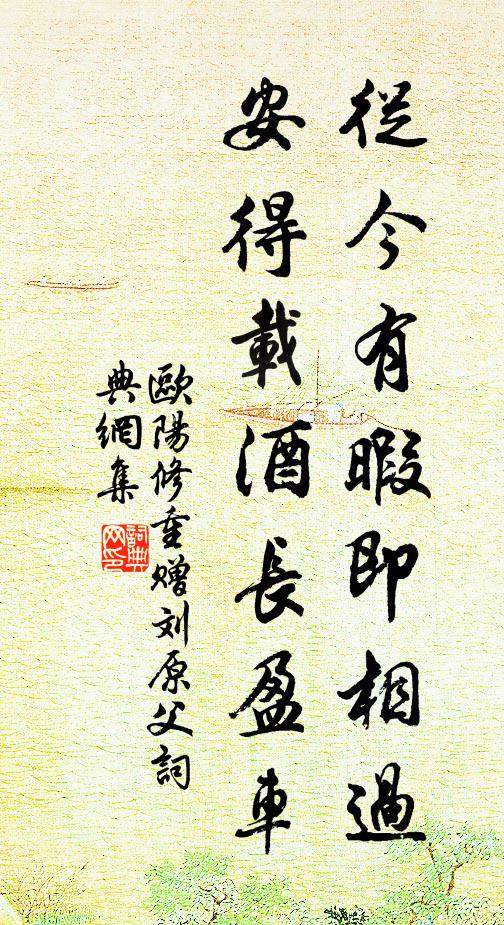 從今有暇即相過
安得載酒長盈車
歐陽修重贈刘原父詞
典網集
詞典
网印